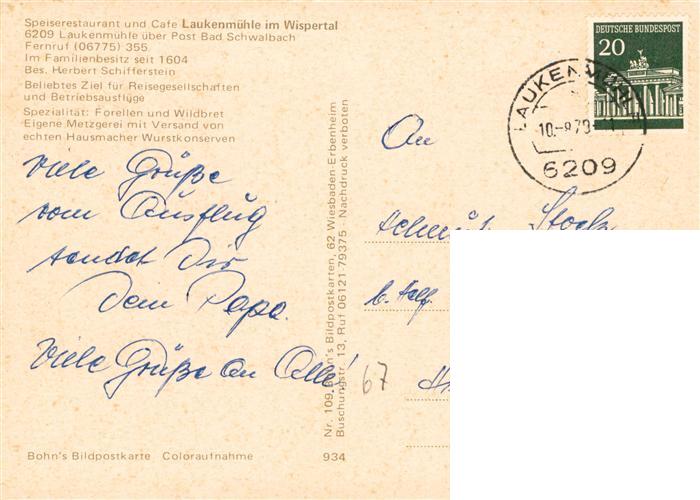 Speiserestaurant und Cafe Laukenmühle im Wispertal
6209 Laukenmühle über Post Bad Schwalbach
Fernruf (06775) 355
Im Familienbesitz seit 1604
Bes. Herbert Schifferstein
Beliebtes Ziel für Reisegesellschaften
und Betriebsausflüge
Spezialität: Forellen und Wildbret
Eigene Metzgerei mit Versand von
echten Hausmacher Wurstkonserven
Viele Grüße
vom Ausflug
sendet Dir
Dein Papa.
Viele Grüße an Alle!
Bohn's Bildpostkarte Coloraufnahme 934
Nr. 109 Bohn's Bildpostkarten, 62 Wiesbaden-Erbenheim
Buschungstr. 13, Ruf 06121-79375 - Nachdruck verboten
DEUTSCHE BUNDESPOST
20
LAUKENMÜHLE
10.-8.70
6209
An
Stock
67